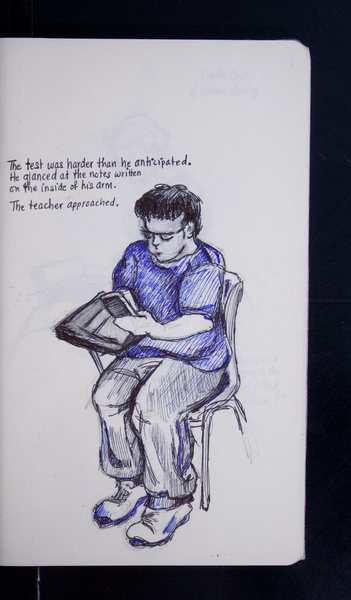 The test was harder than he anticipated.
He glanced at the notes written
on the inside of his arm.
The teacher approached.